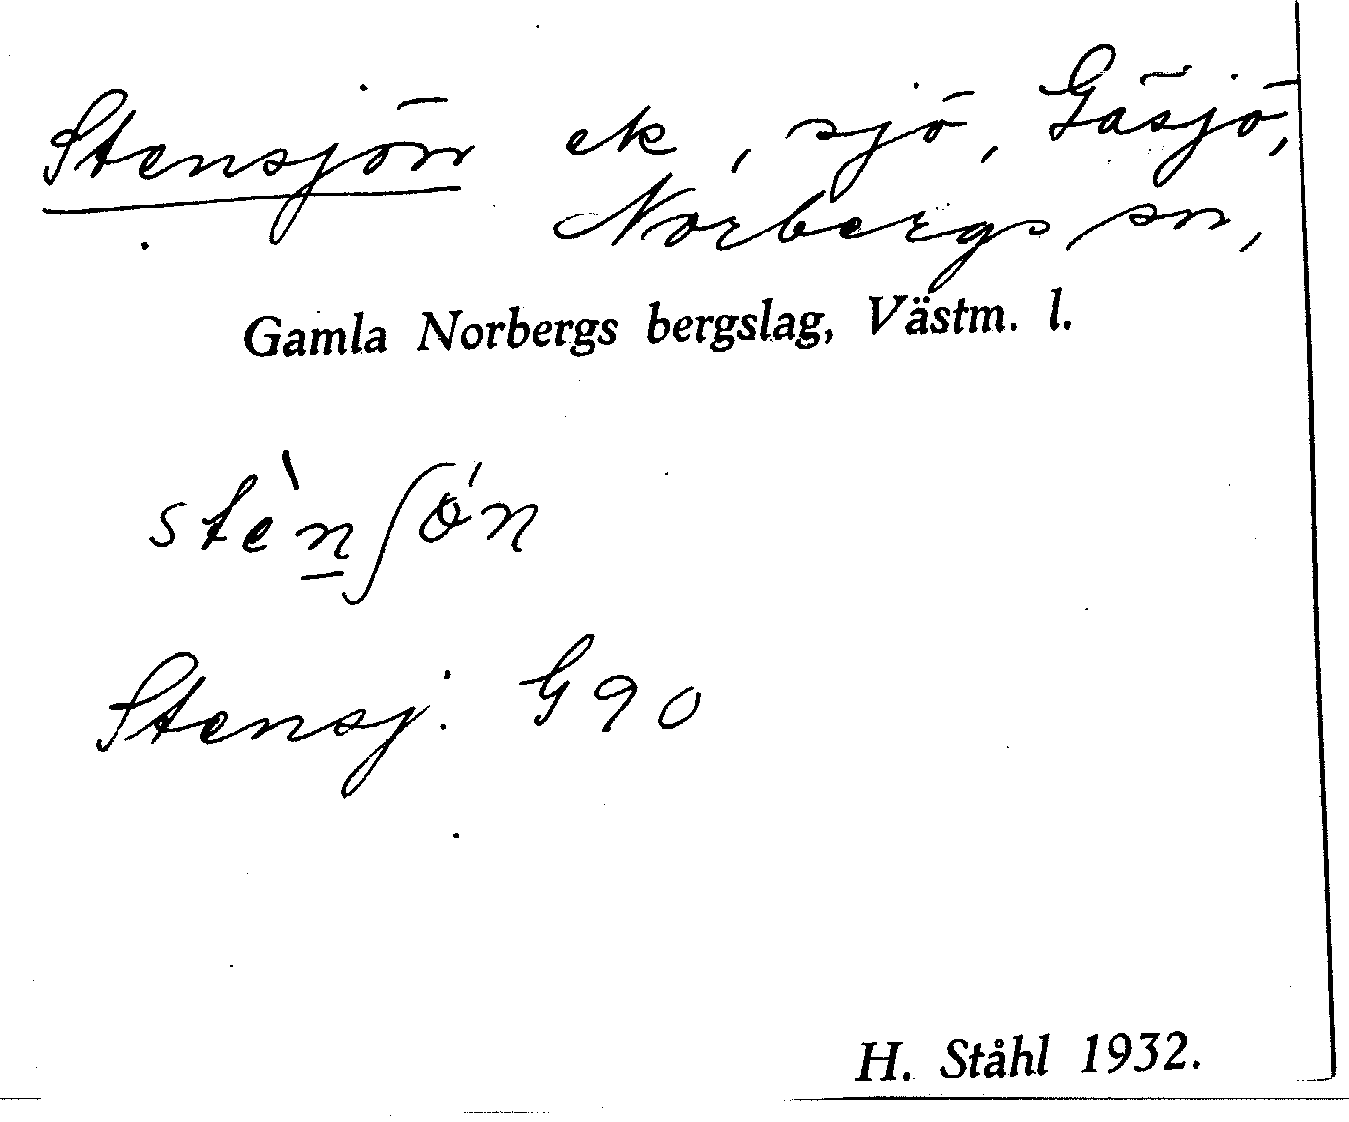 Stensjön ek, sjö, Gäsjö,
Norbergs sn,
Gamla Norbergs bergslag, Västm. l.
stèn̲ʃǿn
Stensj. G 90
H. Ståhl 1932.